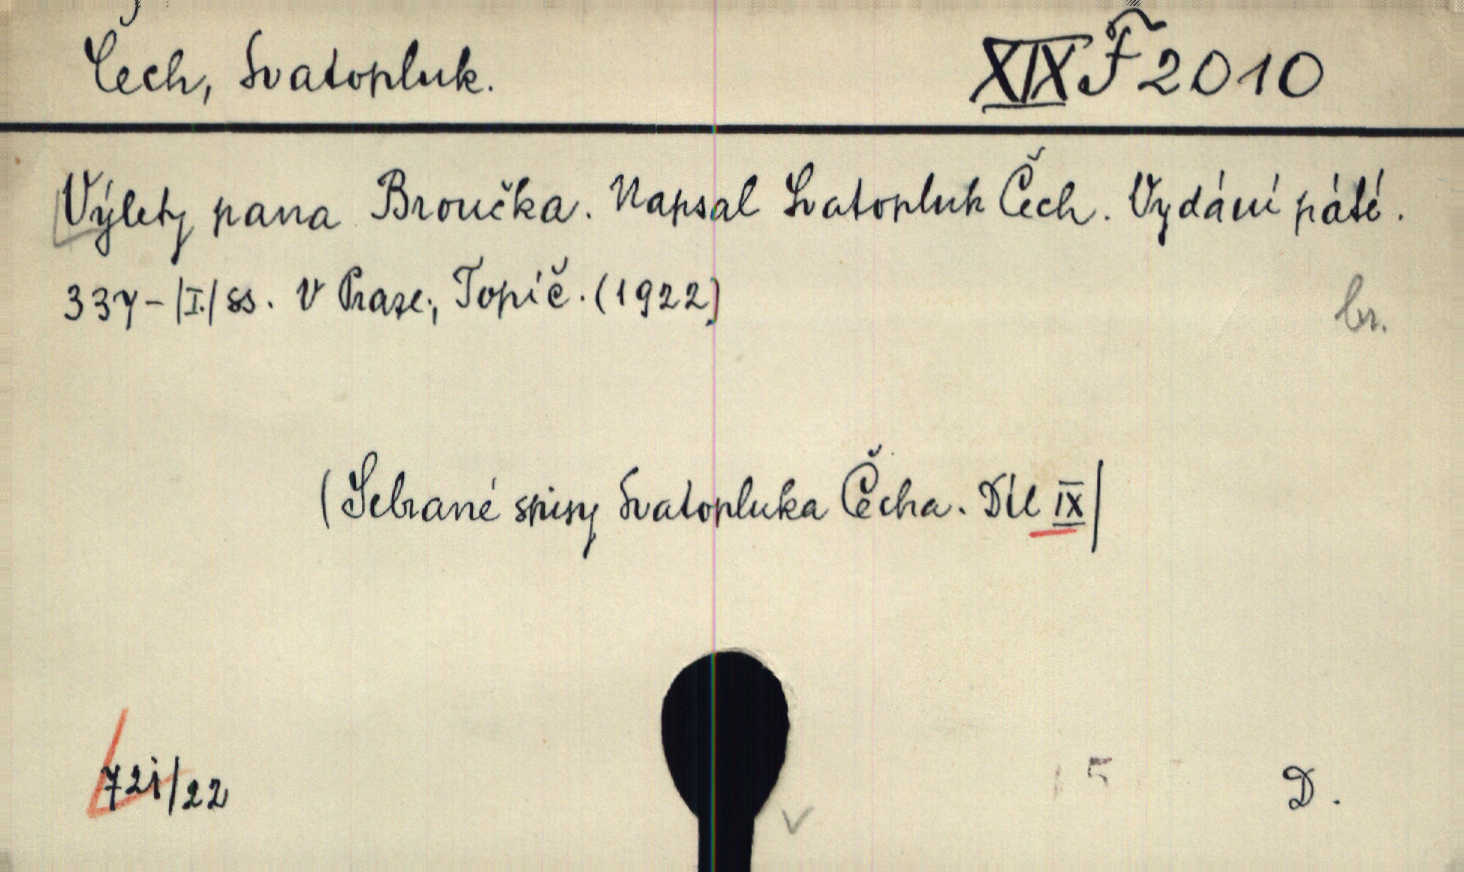 Čech, Svatopluk. XIX F 2010
Výlety pana Broučka. Napsal Svatopluk Čech. Vydání páté.
337-|I.| ss. V Praze, Topič. (1922)
br.
(Sebrané spisy Svatopluka Čecha. Díl IX)
72i/22 5 D.